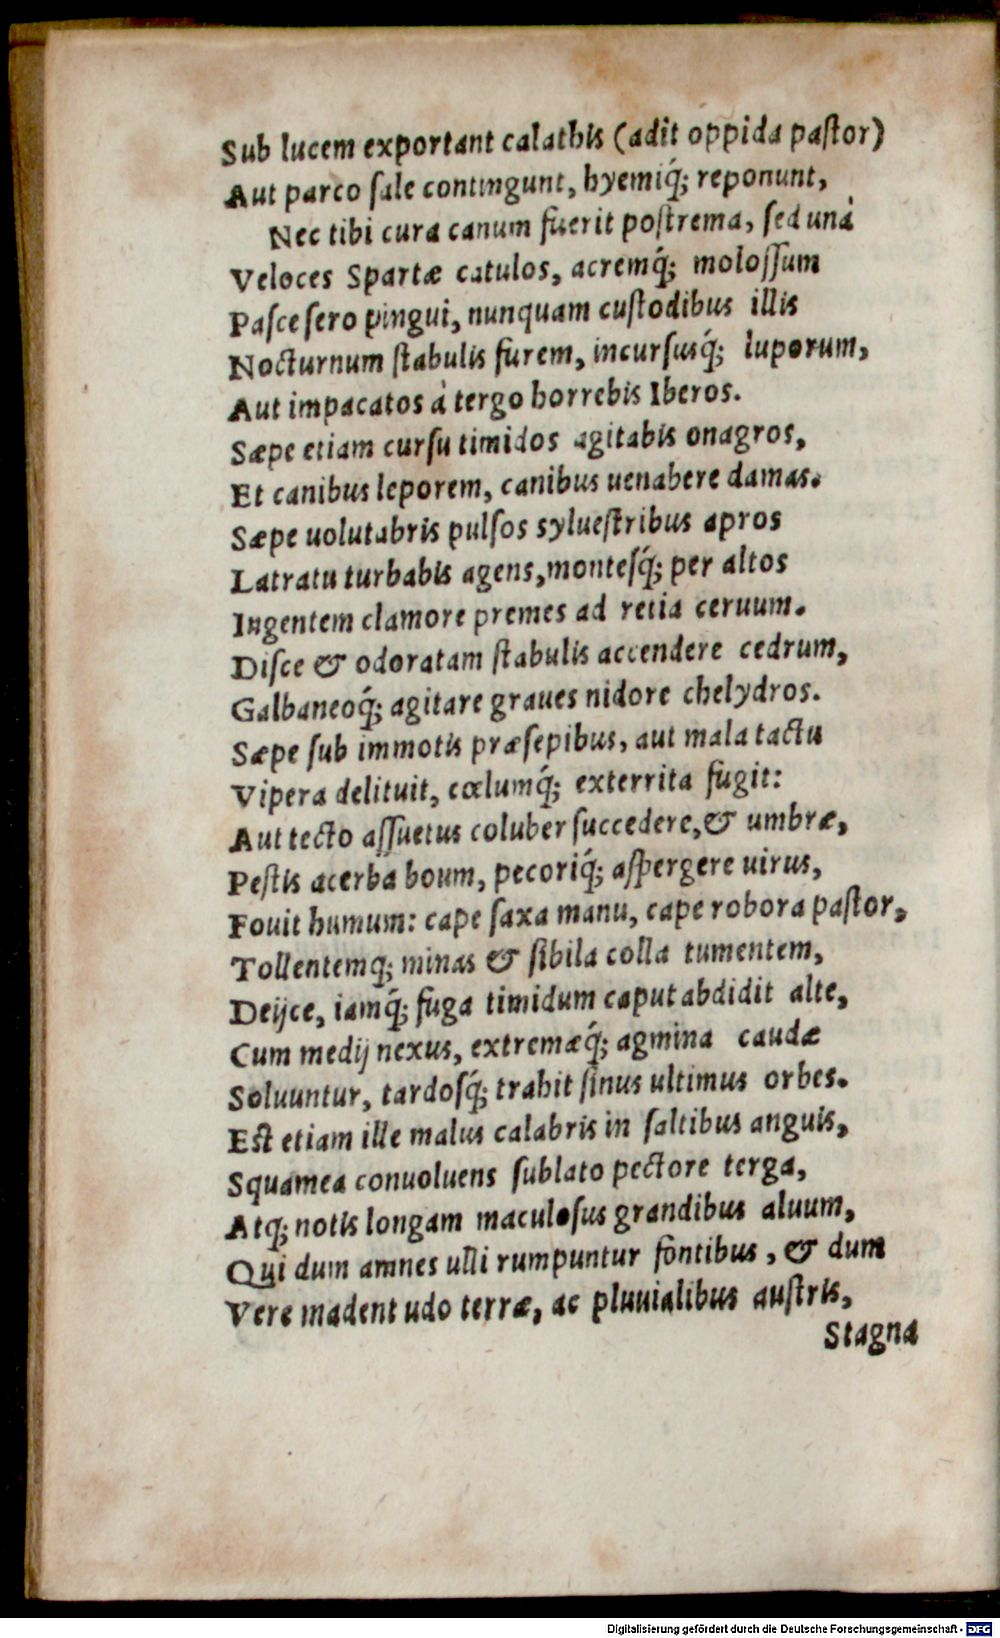 Sub lucem exportant calathis (adit oppida paſtor)
Aut parco ſale contingunt, hyemiq́; reponunt,
Nec tibi cura canum fuerit poſtrema, ſed unà
Veloces Spartæ catulos, acremq́; moloſſum
Paſce ſero pingui, nunquam cuſtodibus illis
Nocturnum ſtabulis furem, incurſusq́; luporum,
Aut impacatos à tergo horrebis Iberos.
Sæpe etiam curſu timidos agitabis onagros,
Et canibus leporem, canibus uenabere damas.
Sæpe uolutabris pulſos sylueſtribus apros
Latratu turbabis agens, monteſq́; per altos
Ingentem clamore premes ad retia ceruum.
Diſce & odoratam ſtabulis accendere cedrum,
Galbaneoq́; agitare graues nidore chelydros.
Sæpe ſub immotis præſepibus, aut mala tactu
Vipera delituit, cœlumq́; exterrita fugit:
Aut tecto aſſuetus coluber ſuccedere, & umbræ,
Peſtis acerba boum, pecoriq́; aſpergere uirus,
Fouit humum: cape ſaxa manu, cape robora paſtor,
Tollentemq; minas & ſibila colla tumentem,
Deijce, iamq́; fuga timidum caput abdidit alte,
Cum medij nexus, extremæq́; agmina caudæ
Soluuntur, tardosq́; trahit ſinus ultimus orbes.
Eſt etiam ille malus calabris in ſaltibus anguis,
Squamea conuoluens ſublato pectore terga,
Atq; notis longam maculoſus grandibus aluum,
Qui dum amnes ulli rumpuntur fontibus, & dum
Vere madent udo terræ, ac pluuialibus auſtris,
Stagna
Digitalisierung gefördert durch die Deutsche Forschungsgemeinschaft - DFG